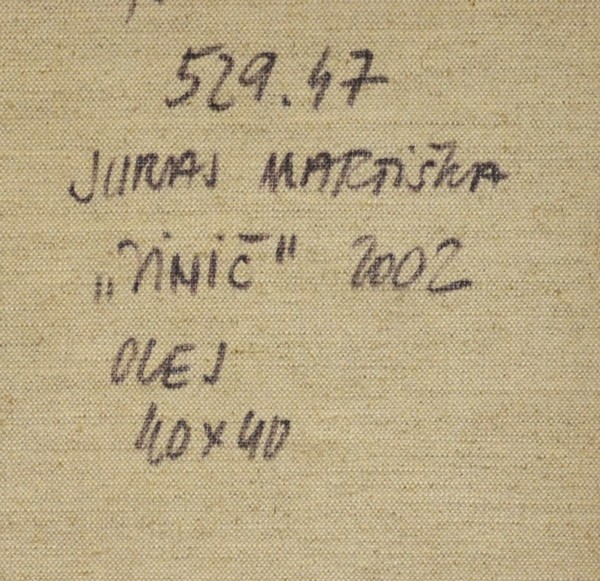 529.47
JURAJ MARTIŠKA
„VINIČ" 2002
OLEJ
40x40